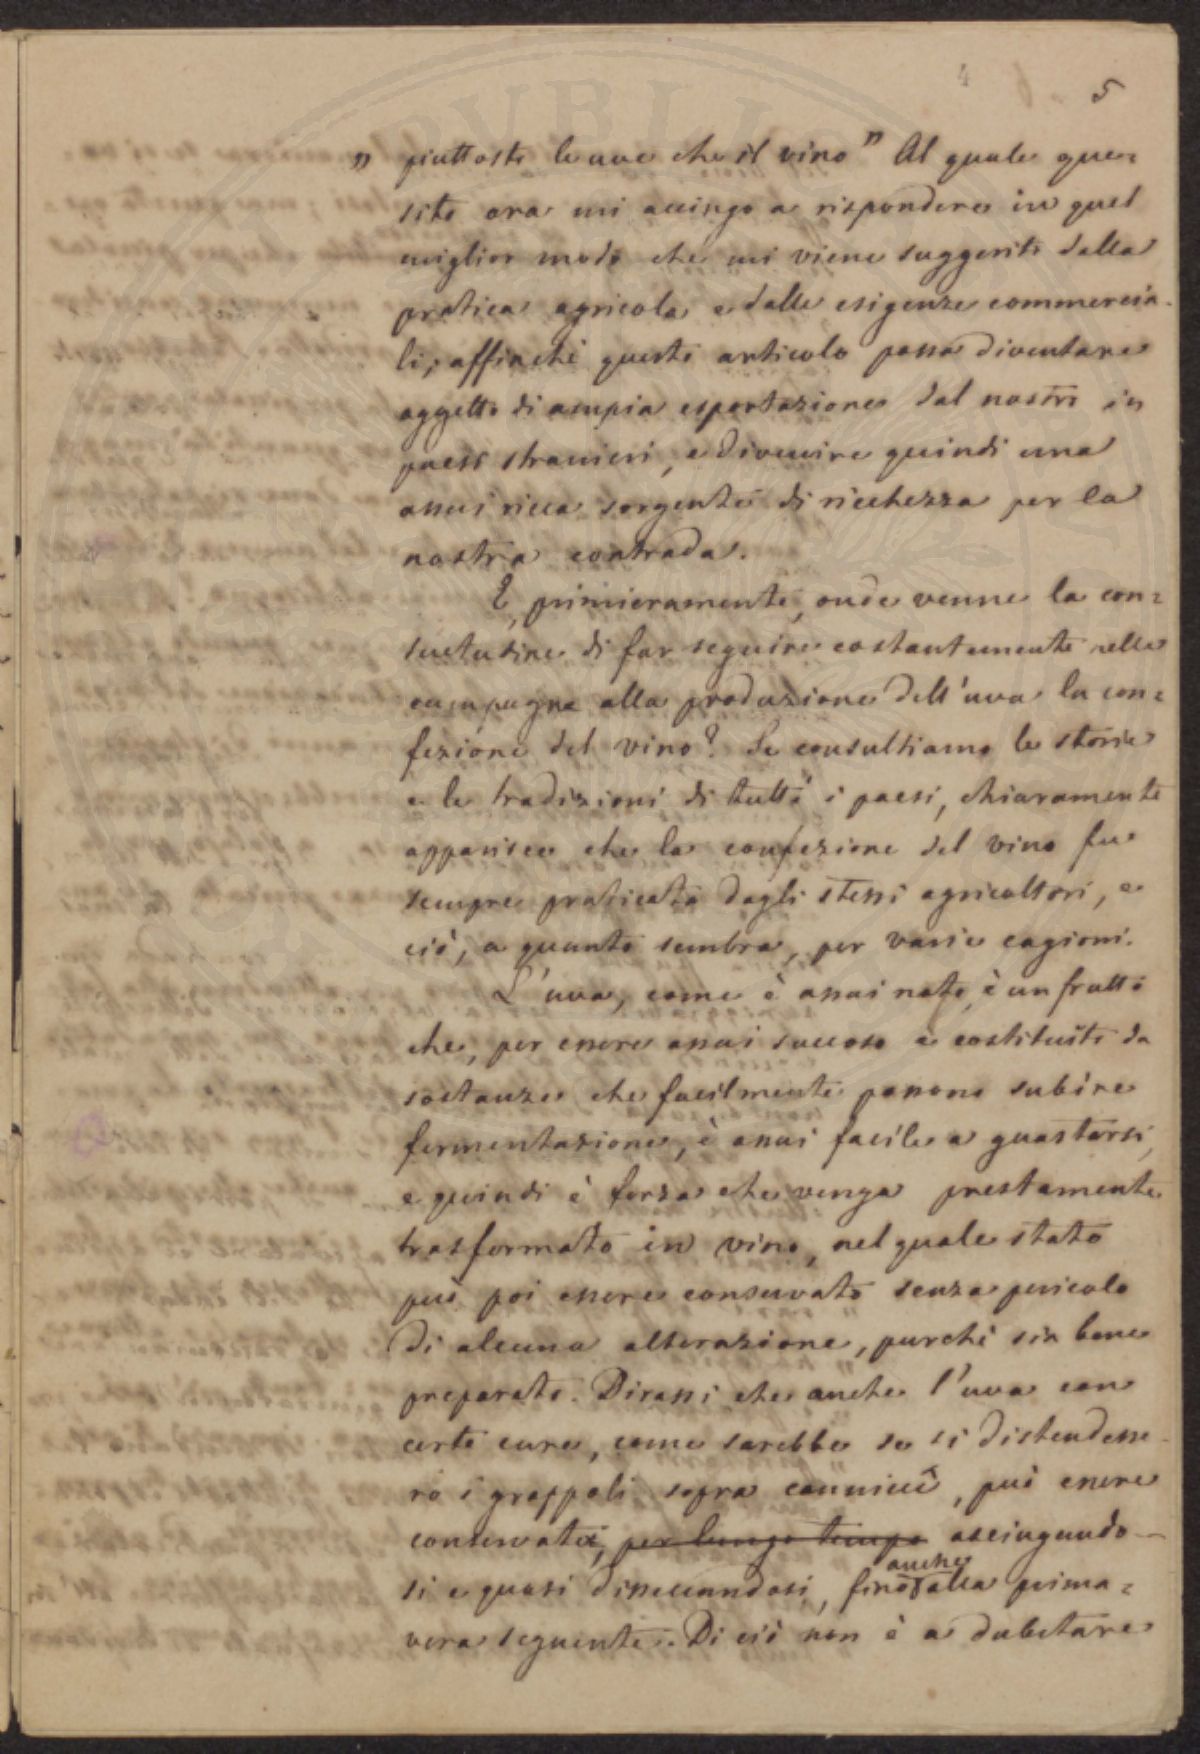 4
5
" piuttosto le uve che il vino" Al quale que=
sito ora mi accingo a rispondere in quel
miglior modo che mi viene suggerito dalla
pratica agricola e dalle esigenze commercia-
li; affinché questo articolo possa diventare
oggetto di ampia esportazione dal nostro in
paesi stranieri, e divenire quindi una
assai ricca sorgente di ricchezza per la
nostra contrada.
E, primieramente, onde venne la con=
suetudine di far seguire costantemente nelle
campagne alla produzione dell'uva la con=
fezione del vino? Se consultiamo le storie
e le tradizioni di tutti i paesi, chiaramente
apparisce che la confezione del vino fu
sempre praticata dagli stessi agricoltori, e
ciò, a quanto sembra, per varie cagioni.
L'uva, come è assai noto, è un frutto
che, per essere assai succoso e costituito da
sostanze che facilmente possono subire
fermentazione, è assai facile a guastarsi,
e quindi è forza che venga prestamente
trasformato in vino, nel quale stato
può poi essere conservato senza pericolo
di alcuna alterazione, purché sia bene
preparato. Dirassi che anche l'uva con
certe cure, come sarebbe se si distendesse-
ro i grappoli sopra cannicci, può essere
conservata, per lungo tempo asciugando-
si e quasi disseccandosi, fino anche alla prima=
vera seguente. Di ciò non è a dubitare